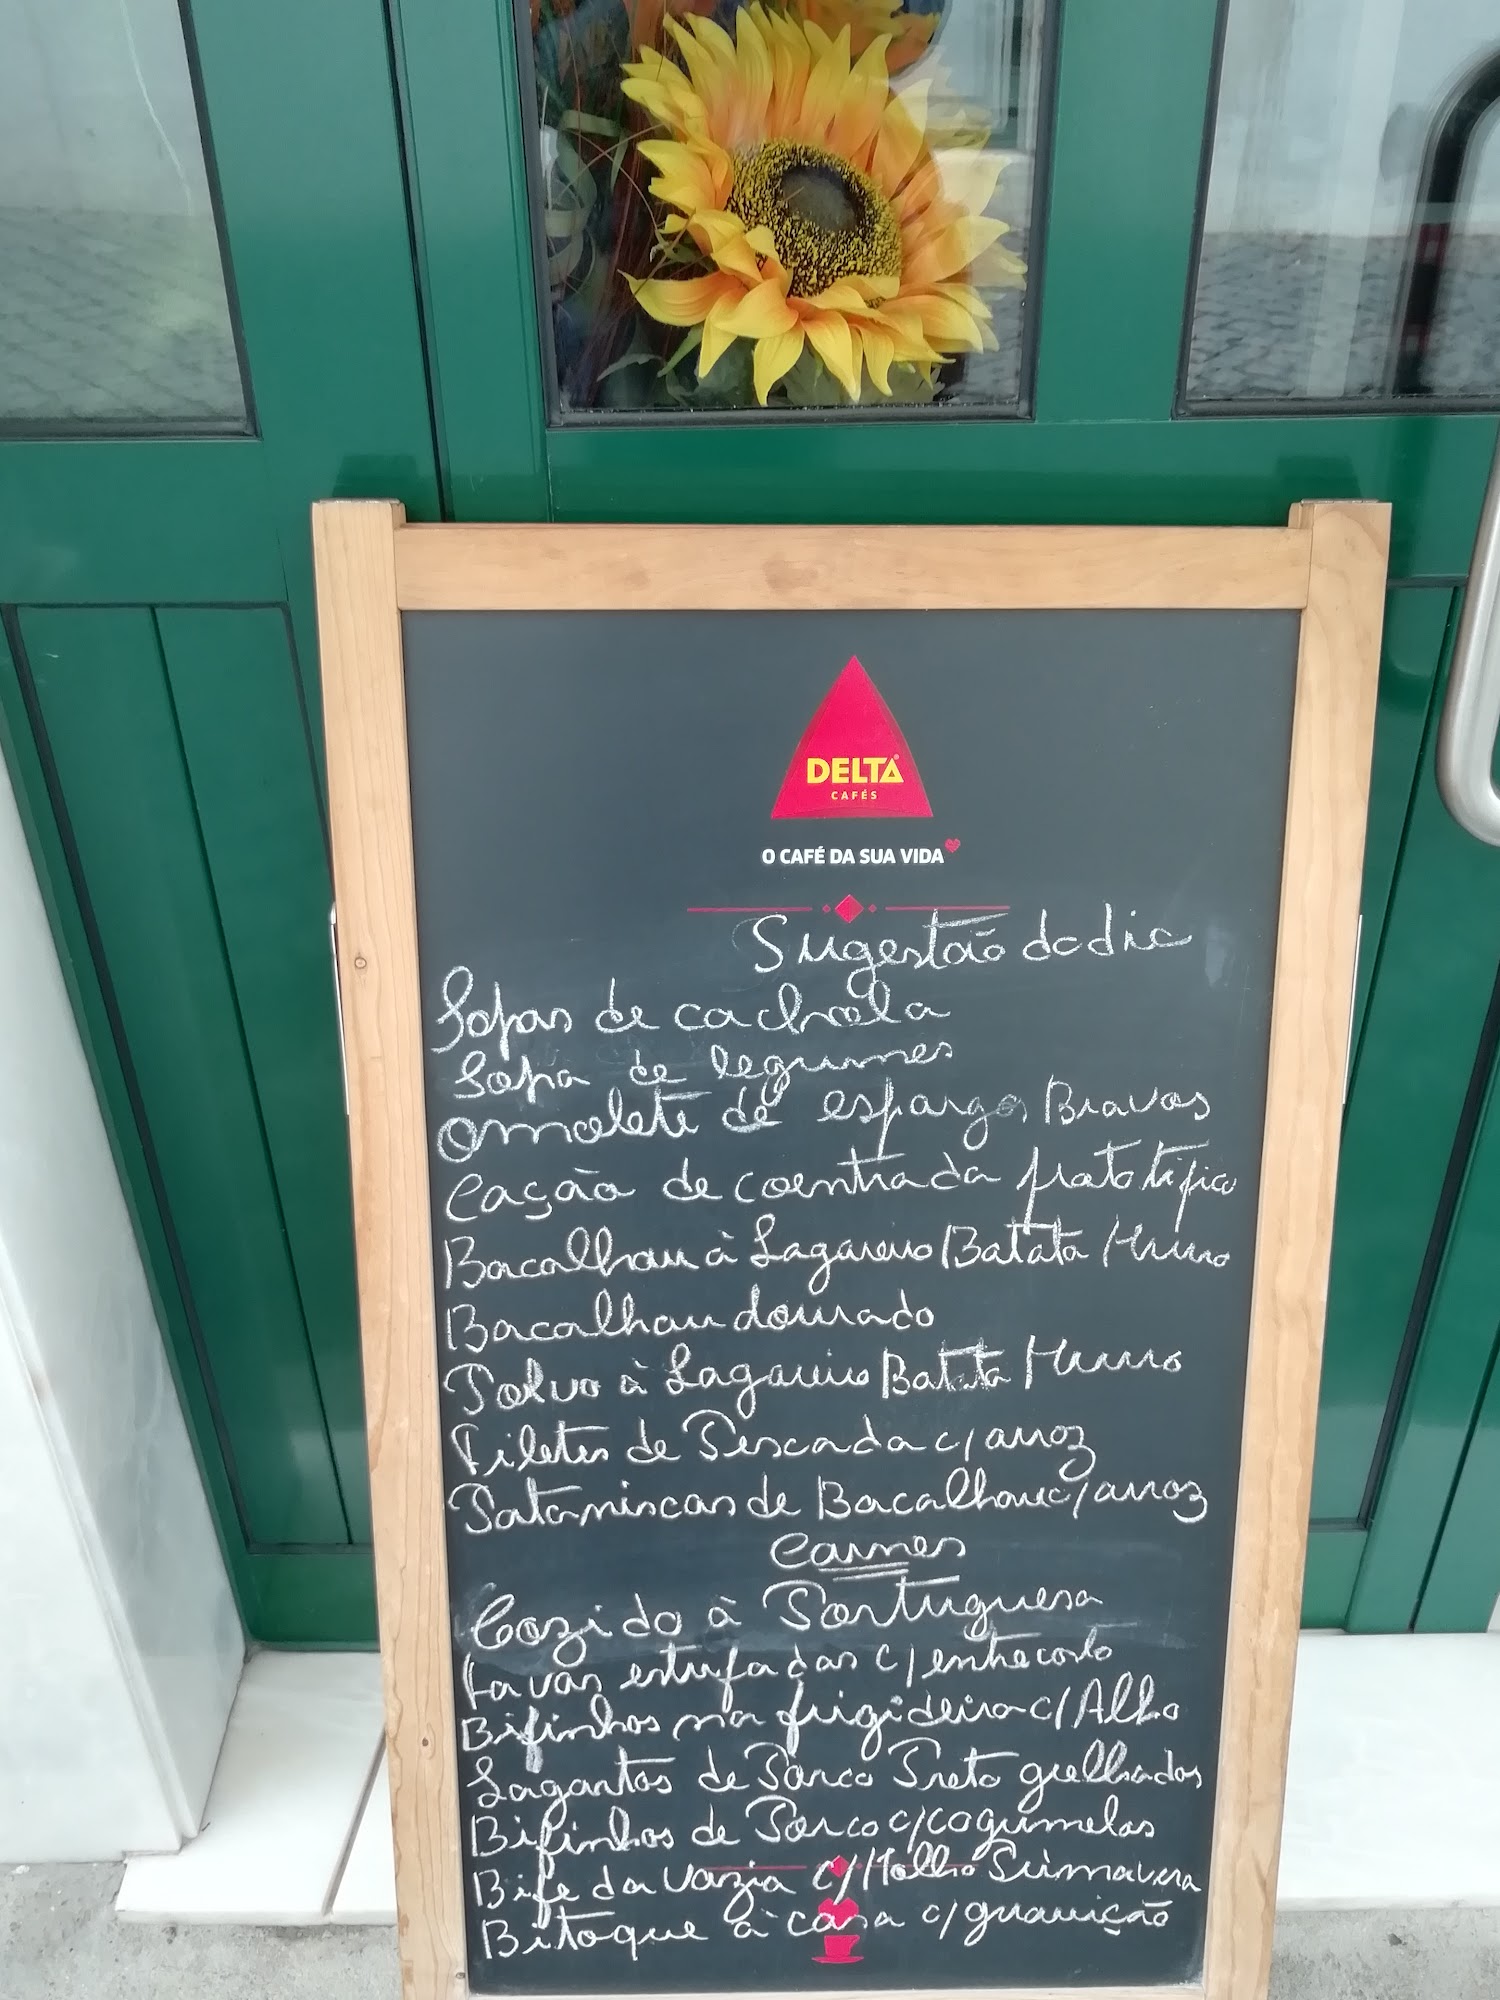 DELTA
CAFÉS
O CAFÉ DA SUA VIDA
Sugestão do dia
Sopas de cachola
Sopa de legumes
Omolete de espargos Bravos
Cação de coentrada prato tipico
Bacalhau à Lagareiro Batata Murro
Bacalhau dourado
Polvo à Lagareiro Batata Murro
Filetes de Pescada c/arroz
Pataniscas de Bacalhau c/arroz
Carnes
Cozido à Portuguesa
Favas estufadas c/entrecosto
Bifinhos na frigideira c/Alho
Lagartos de Porco Preto grelhados
Bifinhos de Porco c/cogumelos
Bife da Vazia c/Molho Primavera
Bitoque à casa c/guarnição